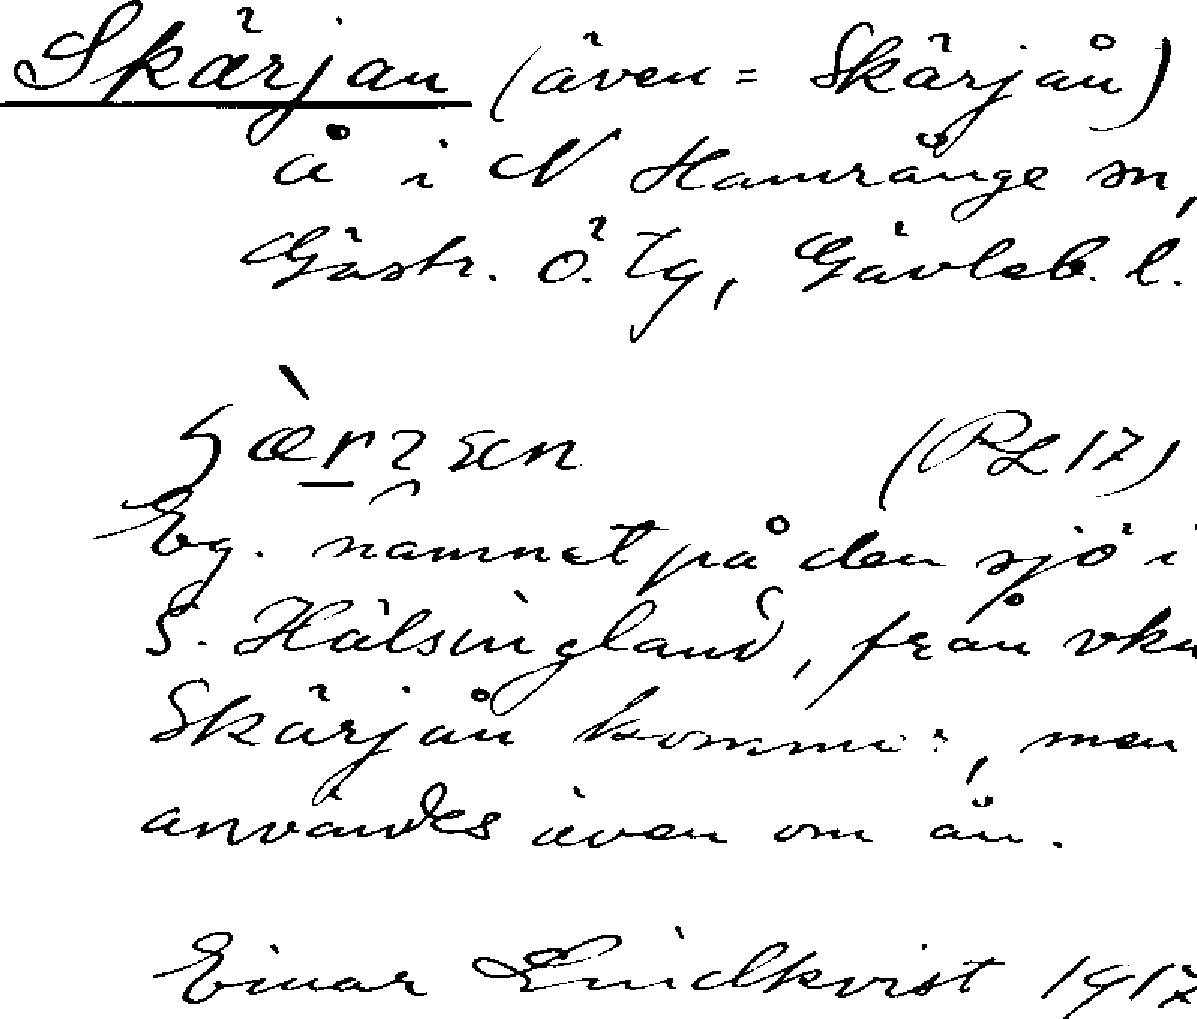 Skärjan (även = Skärjån)
å i N Hamrånge sn,
Gästr. Ö. Tg, Gävleb. l.
(PL 17)
Eg. namnet på den sjö i
S. Hälsingland, från vku
Skärjån kommer, men
användes även om ån.
Einar Lindkvist 1917